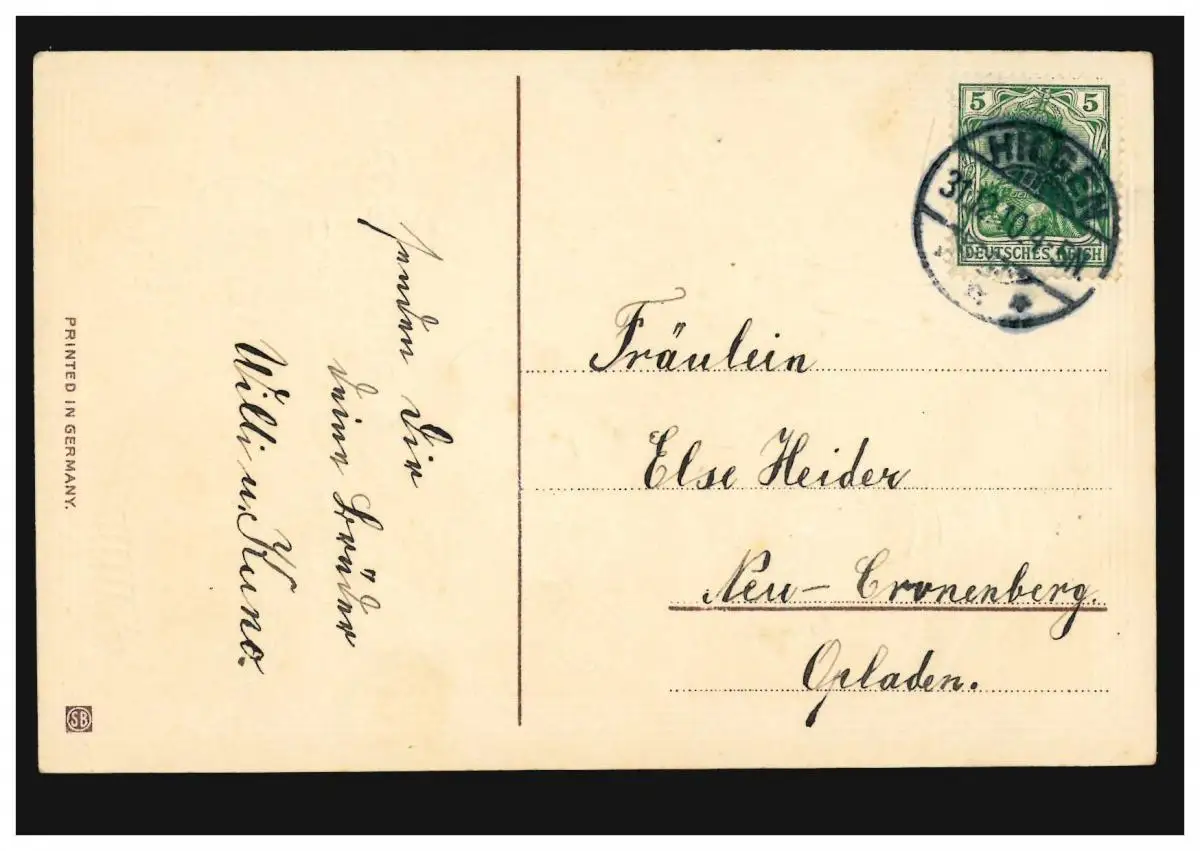 senden Dir
deine Brüder
Willi u. Kuno.
PRINTED IN GERMANY.
SB
5 5
DEUTSCHES REICH
31.12.10.4-5N.
Fräulein
Else Heider
Neu-Cronenberg.
Opladen.